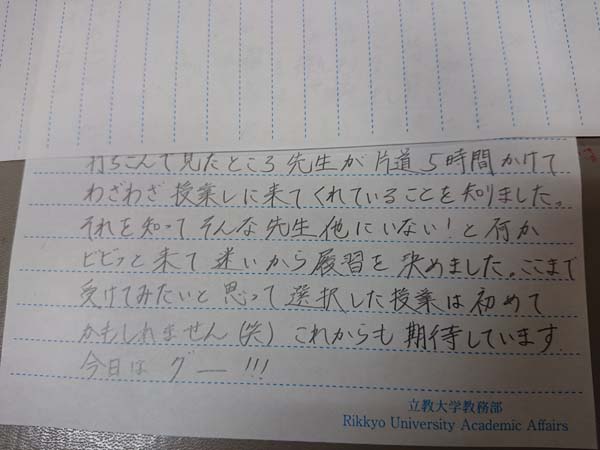 打ちこんで見たところ先生が片道5時間かけて
わざわざ授業しに来てくれていることを知りました。
それを知ってそんな先生他にいない!と何か
ビビッと来て迷いから履習を決めました。ここまで
受けてみたいと思って選択した授業は初めて
かもしれません(笑)これからも期待しています
今日は グー!!!
立教大学教務部
Rikkyo University Academic Affairs